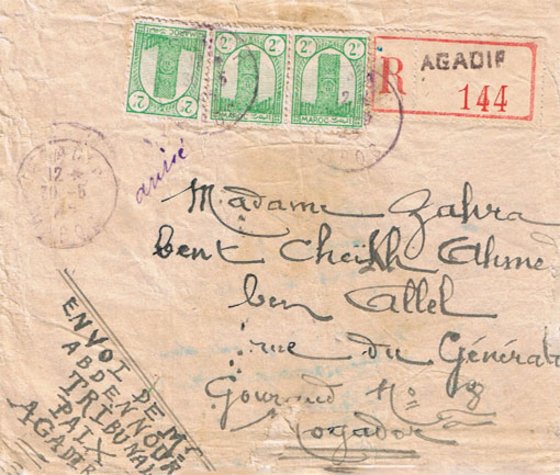 2F
2F
2F
MAROC
MAROC
R
AGADIR
144
12
avisé
Madame Zahra
bent Cheikh Ahme
ben Allel
rue du Général
Gouraud No 8
Mogador
ENVOI DE Mr
ABDENNOUR
TRIBUNAL
PAIX
AGADIR